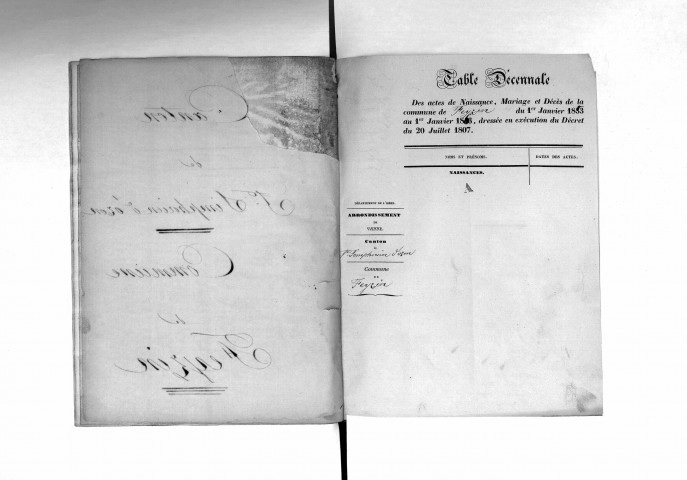 Canton
de
St. Simphorien d'ozon
Commune
de
Feyzin
Table Décennale
Des actes de Naissance, Mariage et Décès de la
commune de Feyzin du 1er Janvier
au 1er Janvier dressée en exécution du Décret
du 20 Juillet 1807.
NOMS ET PRÉNOMS. DATES DES ACTES.
NAISSANCES.
A
DÉPARTEMENT DE L'ISÈRE.
ARRONDISSEMENT
DE
VIENNE.
Canton
de
St. Symphorien d'ozon
Commune
DE
Feyzin